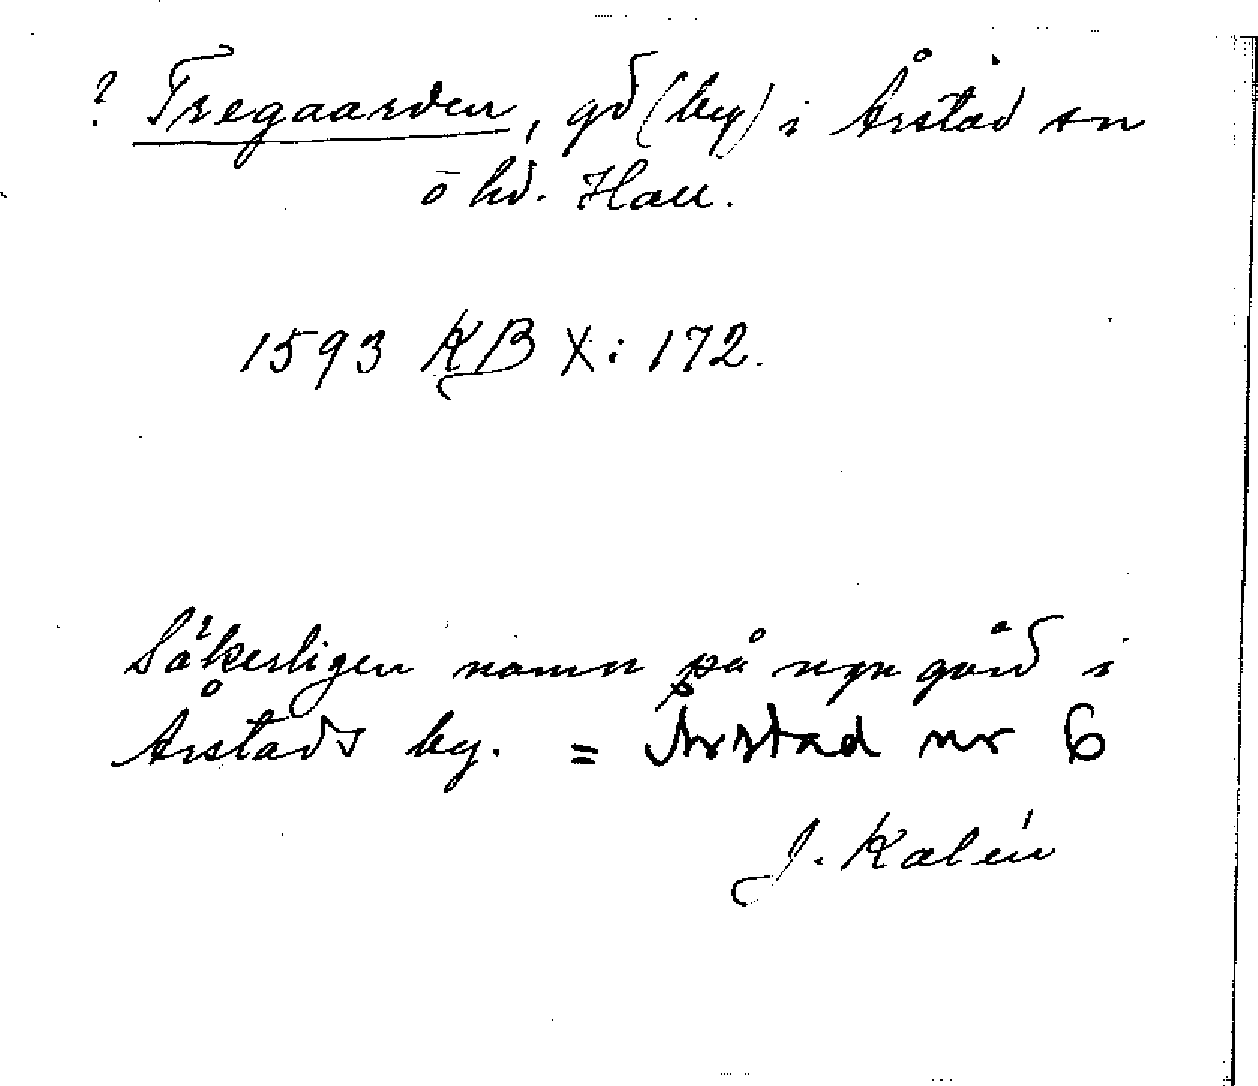 ? Tregaarden, gd (by) i Årstad sn
ö hd. Hall.
1593 KB X: 172.
Säkerligen namn på ngn gård i
Årstads by. = Årstad nr 6
J. Kalén